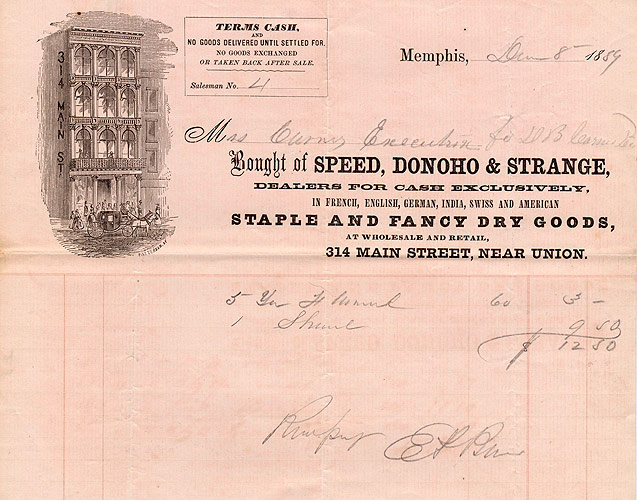 TERMS CASH,
AND
NO GOODS DELIVERED UNTIL SETTLED FOR.
NO GOODS EXCHANGED
OR TAKEN BACK AFTER SALE.
Salesman No. 4
314 MAIN ST
Memphis, 8 1859
Bought of SPEED, DONOHO & STRANGE,
DEALERS FOR CASH EXCLUSIVELY,
IN FRENCH, ENGLISH, GERMAN, INDIA, SWISS AND AMERICAN
STAPLE AND FANCY DRY GOODS,
AT WHOLESALE AND RETAIL,
314 MAIN STREET, NEAR UNION.
5 60 3 –
1 9 50
$ 12 50